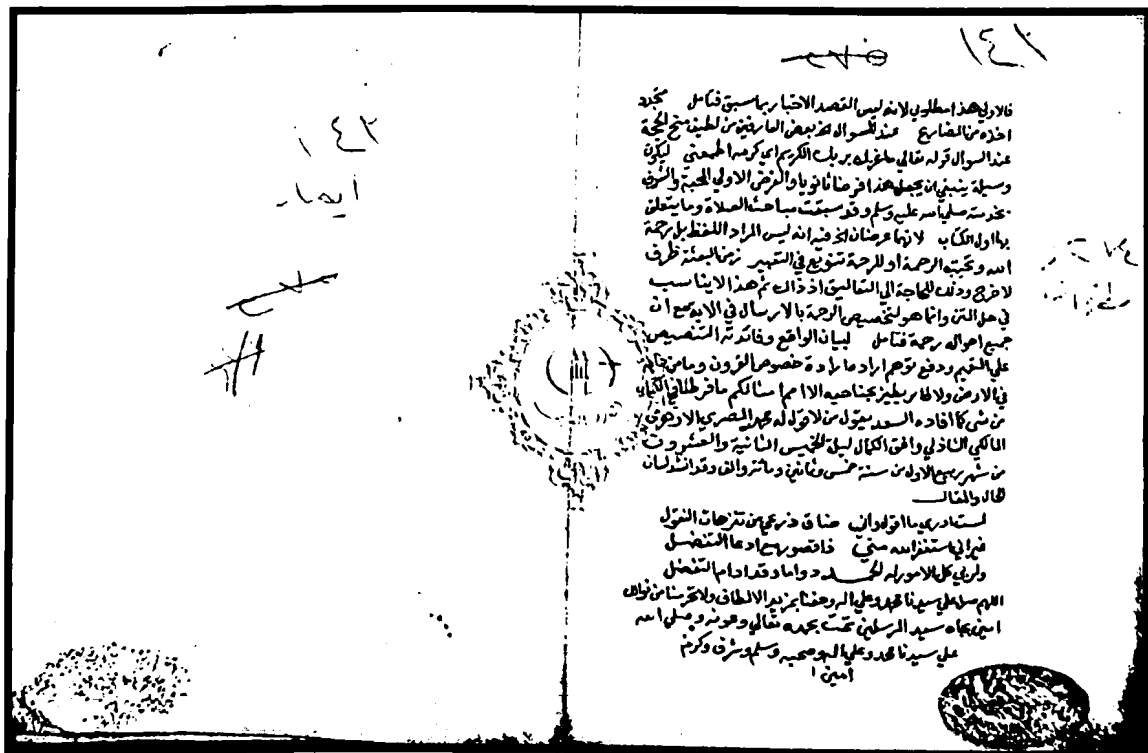 ١٤١
فالاولي هذا مطلوبي لانه ليس القصد الاخبار بما سبق فتامل مجرد
اخذه من المضارع عند السوال اخذ بعض العارفين من لطيف منح الحجة
عند السوال قوله تعالي ما غرك بربك الكريم اي كرمه اطمعني ليكون
وسيلة ينبغي ان يجعل هذا غرضا ثانويا والغرض الاولي المحبة والشوق
بخدمته صلي الله عليه وسلم وقد سبقت مباحث الصلاة وما يتعلق
بها اول الكتاب لانها عرضان اخ فيه انه ليس المراد اللفظ بل رحمة
الله وتحيته الرحمة او للرحمة تنويع في التعبير زمن البعثة ظرف
لا فرج وذلك للحاجة الي التعاليق اذ ذاك ثم هذا لا يناسب
في حل المتن وانما هو لتخصيص الرحمة بالارسال في الاية مع ان
جميع احواله رحمة فتامل لبيان الواقع وفائدته التنصيص
علي التعميم ودفع توهم ارادة خصوص القرون وما من دابة
في الارض ولا طاير يطير بجناحيه الا امم امثالكم ما فرطنا في الكتاب
من شي كما افاده السعد يقول من لا قول له محمد المصري الازهري
المالكي الشاذلي وافق الكمال ليلة الخميس الثانية والعشروت
من شهر ربيع الاول من سنة خمس وثمانين وماتة والف وقد انشد لسان
الحال والمقال
لست ادري ما اقول واني ضاق ذرعي من تنزحات النقول
غير اني استغفر الله مني فاقصور مع ادعا التفضل
ولربي كل الامور له الحمد دواما وقد ادام التفضل
اللهم صل علي سيدنا محمد وعلي اله وحفنا بمزيد الالطاف ولا تحرمنا من نوالك
امين بجاه سيد المرسلين تمت بحمده تعالي وعونه وصلي الله
علي سيدنا محمد وعلي اله وصحبه وسلم وشرف وكرم
امين ا
١٤٢
أيضا